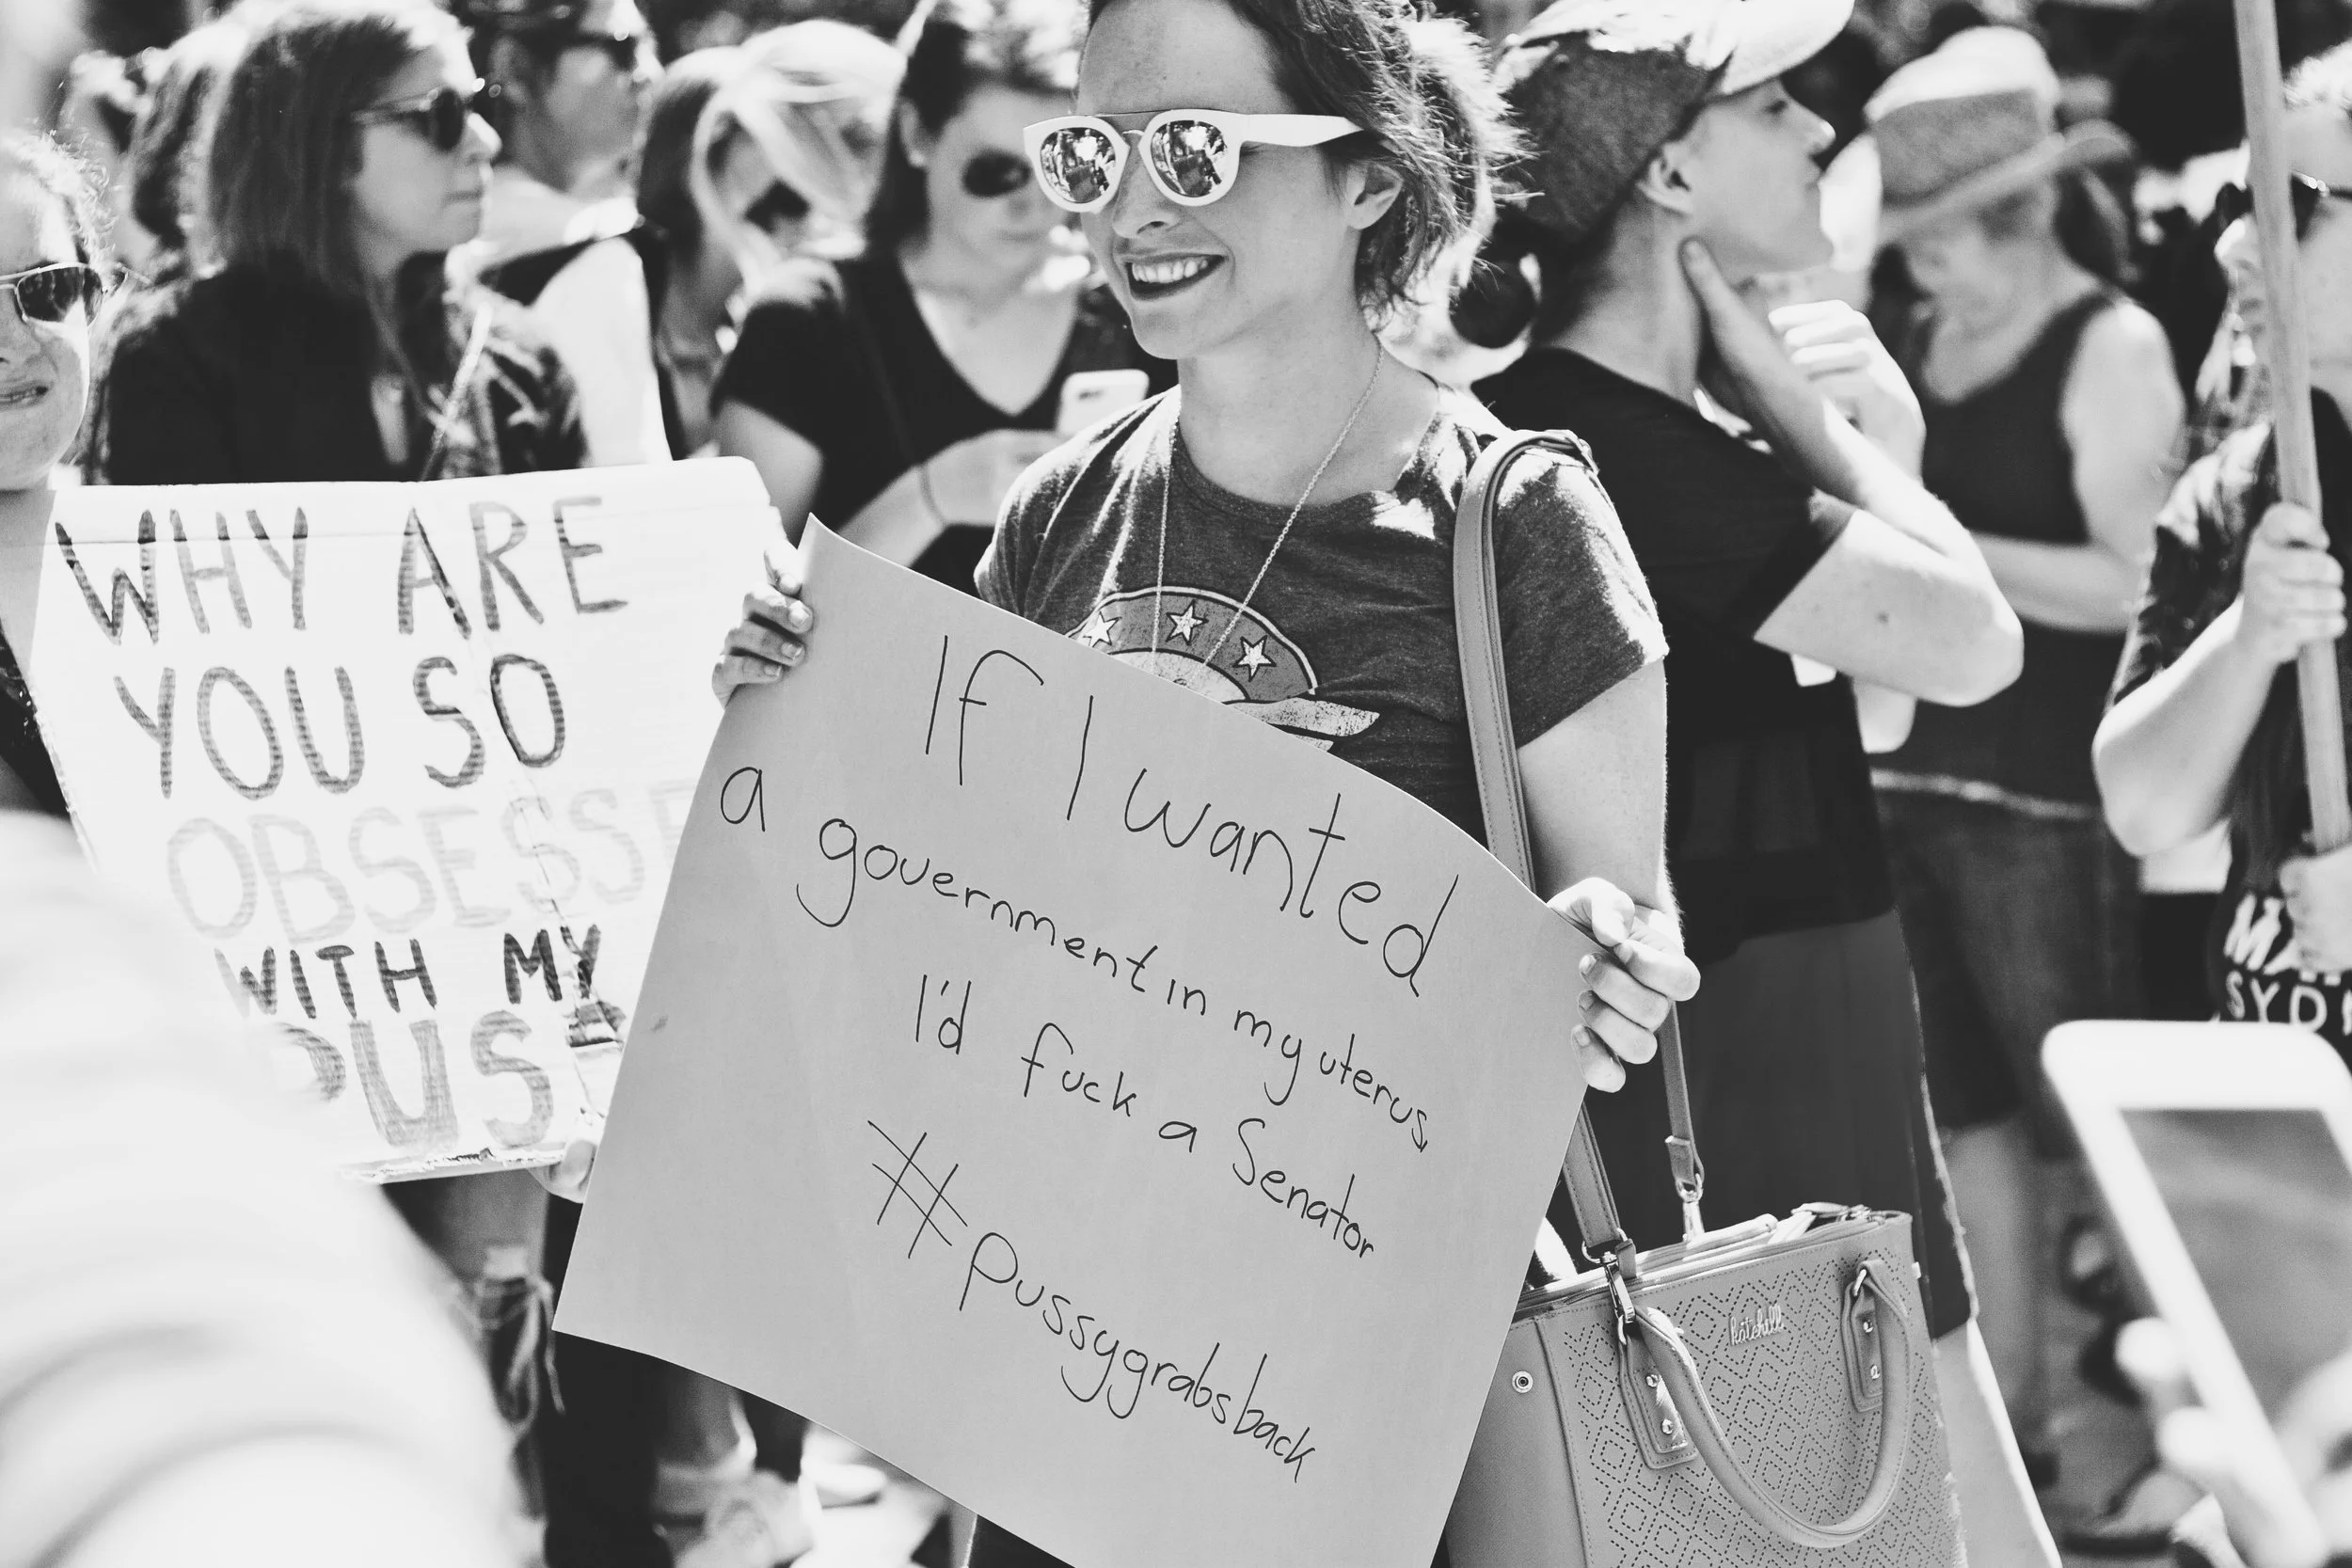 WHY ARE
YOU SO
OBSESSE
WITH MY
PUS
If I wanted
a government in my uterus
I'd fuck a Senator
#pussygrabsback
katehill
SYD